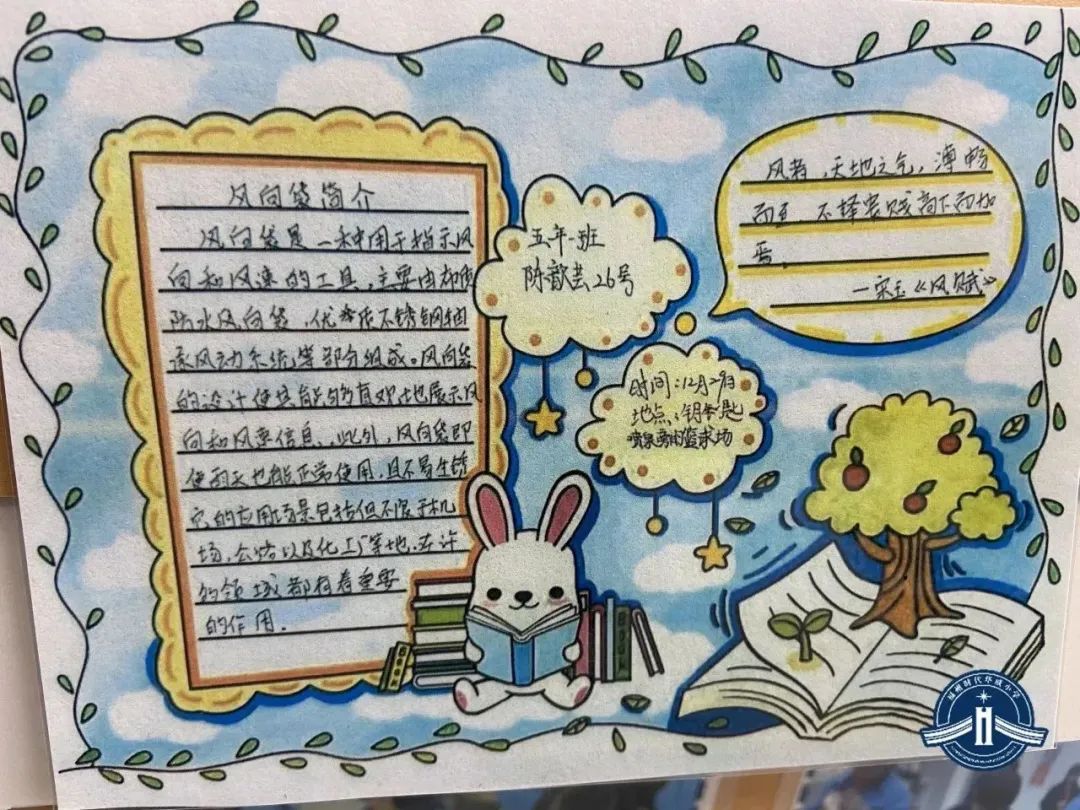 风向袋简介
风向袋是一种用于指示风
向和风速的工具,主要由
防水风向袋,优质不锈钢轴
承风动系统等部分组成。风向袋
的设计使其能够直观地展示风
向和风速信息、此外,风向袋即
使雨天也能正常使用,且不易生锈
它的应用场景包括但不限于机
场,公路以及化工厂等地,在许
的领域都有着重要
的作用.
五年一班
陈歆芸26号
时间:12月29日
地点:钥匙
喷泉旁的篮球场
风者,天地之气,溥畅
而至,不择贵贱高下而加
焉.
—宋玉《风赋》
BOOK
BOOK
福州时代华威小学